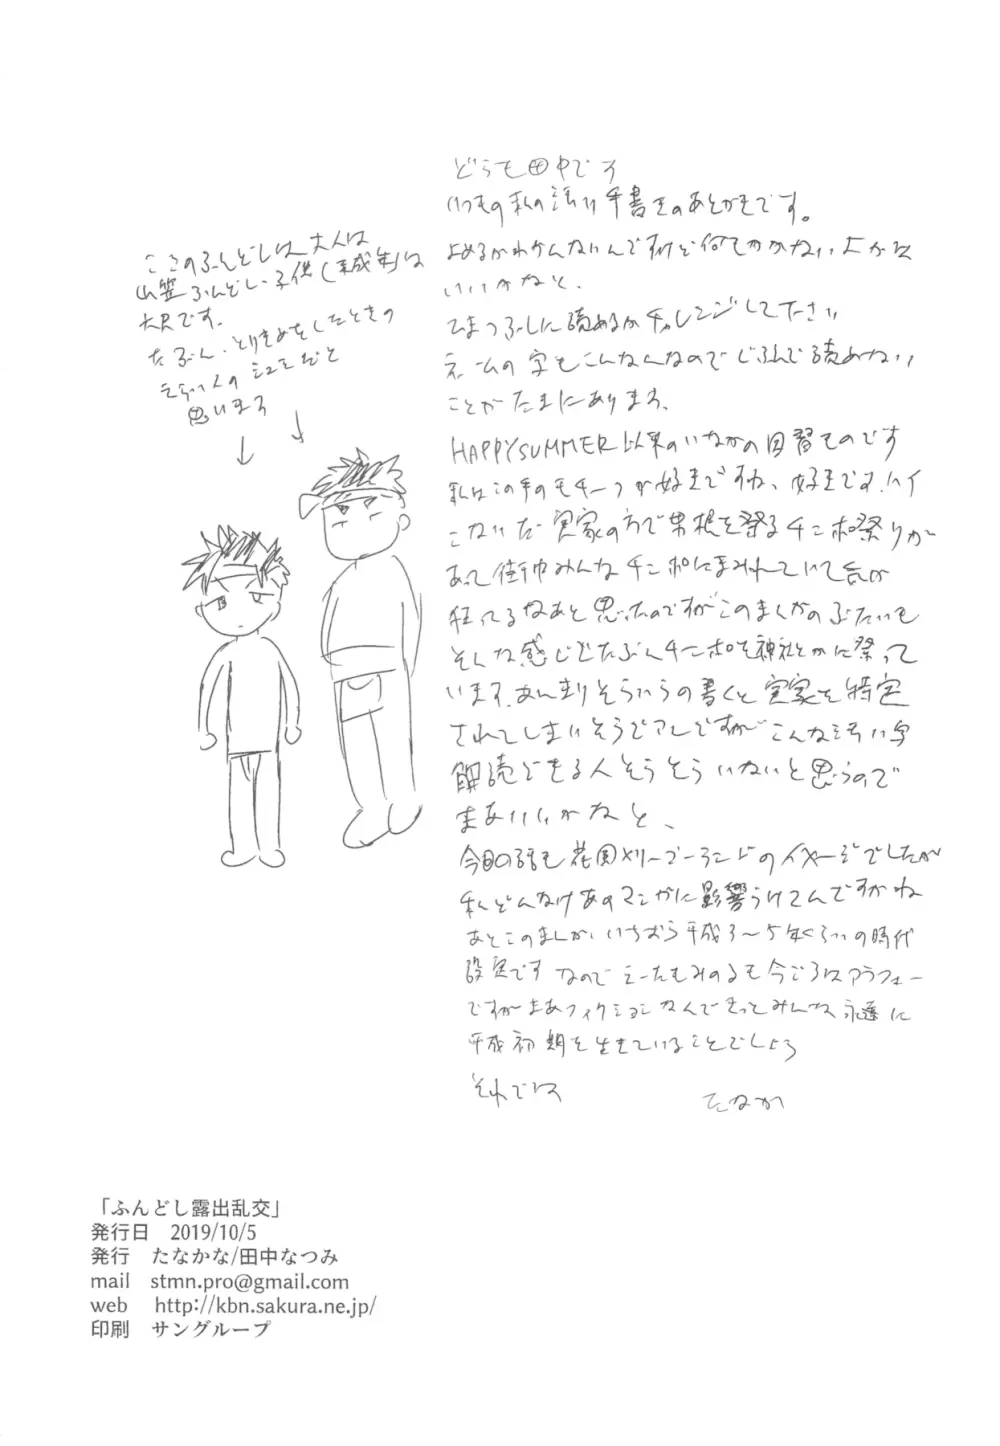 どうも田中です
いつもの私の汚い手書きのあとがきです。
よめるかわかんないんですけど何てかかないよかは
いいかなと、
ひまつぶしに読めるかチャレンジしてください
ネームの字もこんなんなのでじぶんで読めない
ことがたまにあります、
HAPPYSUMMER以来のいなかの因習ものです
私はこの手のモチーフが好きですね、好きです。ハイ
こないだ実家の方で男根を祭るチンポ祭りが
あって街中みんなチンポにまみれていて気が
狂ってるなあと思ったのですがこのまんがのぶたいも
そんな感じでたぶんチンポを神社とかに祭って
います、あんまりそういうの書くと実家を特定
されてしまいそうでアレですがこんな汚い字
解読できる人そうそういないと思うので
まあいいかなと、
今回の話も花園メリーゴーランドのイメージでしたが
私どんだけあのマンガに影響うけてんですかね
あとこのまんが、いちおう平成3〜5年くらいの時代
設定です なので えーたもみのるも今ごろはアラフォー
ですがまあフィクションなんできっとみんな永遠に
平成初期を生きていることでしょう
それでは
たなか
ここのふんどしは大人は
山笠ふんどし、子供(未成年)は
六尺です。
たぶん、とりきめをしたときの
えらい人の シュミだと
思います
「ふんどし露出乱交」
発行日 2019/10/5
発行 たなかな/田中なつみ
mail stmn.pro@gmail.com
web http://kbn.sakura.ne.jp/
印刷 サングループ